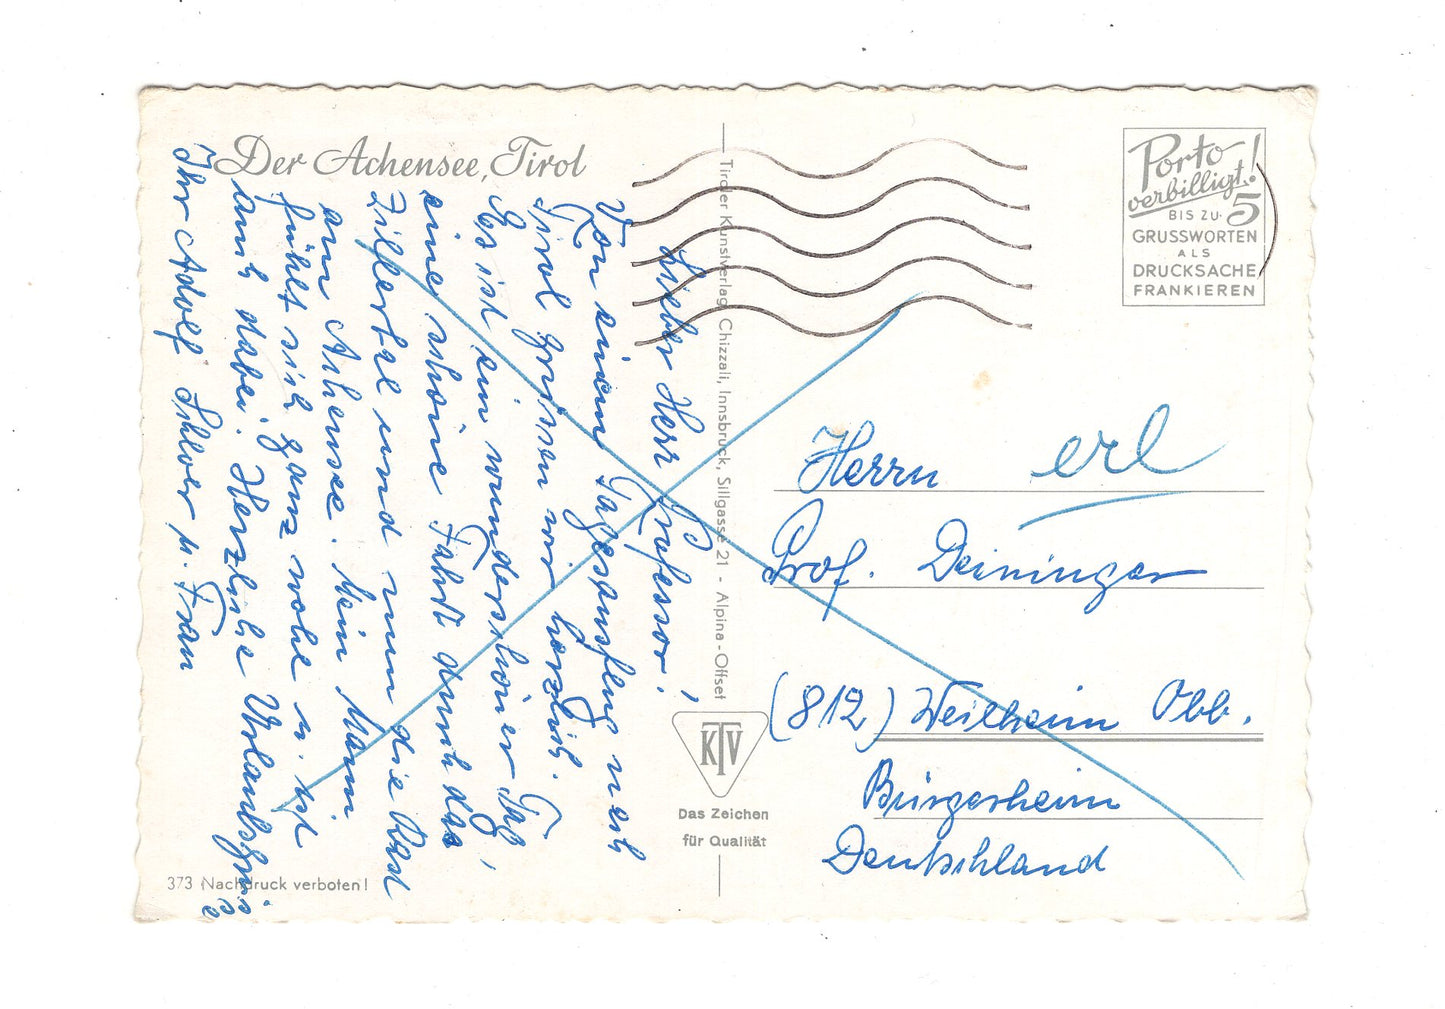 Der Achensee, Tirol
Lieber Herr Professor!
Von einem Tagesausflug nach
Tirol grüssen wir herzlich.
Es ist ein wunderschöner Tag,
eine schöne Fahrt durch das
Zillertal und nun die Rast
am Achensee. Mein Mann
fühlt sich ganz wohl u. ist
auch dabei. Herzliche Urlaubsgrüsse
Ihr Adolf u. Frau
Tiroler Kunstverlag Chizzali, Innsbruck, Sillgasse 21 - Alpina-Offset
KTV
Das Zeichen
für Qualität
373 Nachdruck verboten!
Porto
verbilligt!
BIS ZU 5
GRUSSWORTEN
ALS
DRUCKSACHE
FRANKIEREN
erl
Herrn
Prof. Deininger
(812) Weilheim Obb.
Bürgerheim
Deutschland